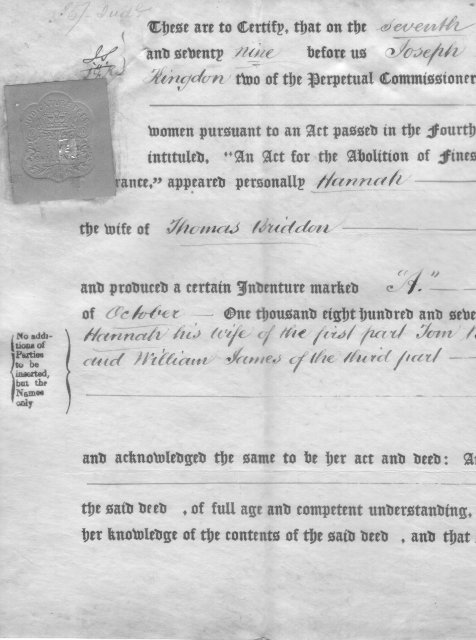 These are to Certify, that on the seventh
and seventy nine before us Joseph
Kingdon two of the Perpetual Commissioner
women pursuant to an Act passed in the Fourth
intituled, "An Act for the Abolition of Fines
rance," appeared personally Hannah
the wife of Thomas Briddon
and produced a certain Indenture marked "A."
of October One thousand eight hundred and seve
Hannah his wife of the first part Tom
and William James of the third part
No addi-
tions of
Parties
to be
inserted,
but the
Names
only
and acknowledged the same to be her act and deed: A
the said deed , of full age and competent understanding,
her knowledge of the contents of the said deed , and that